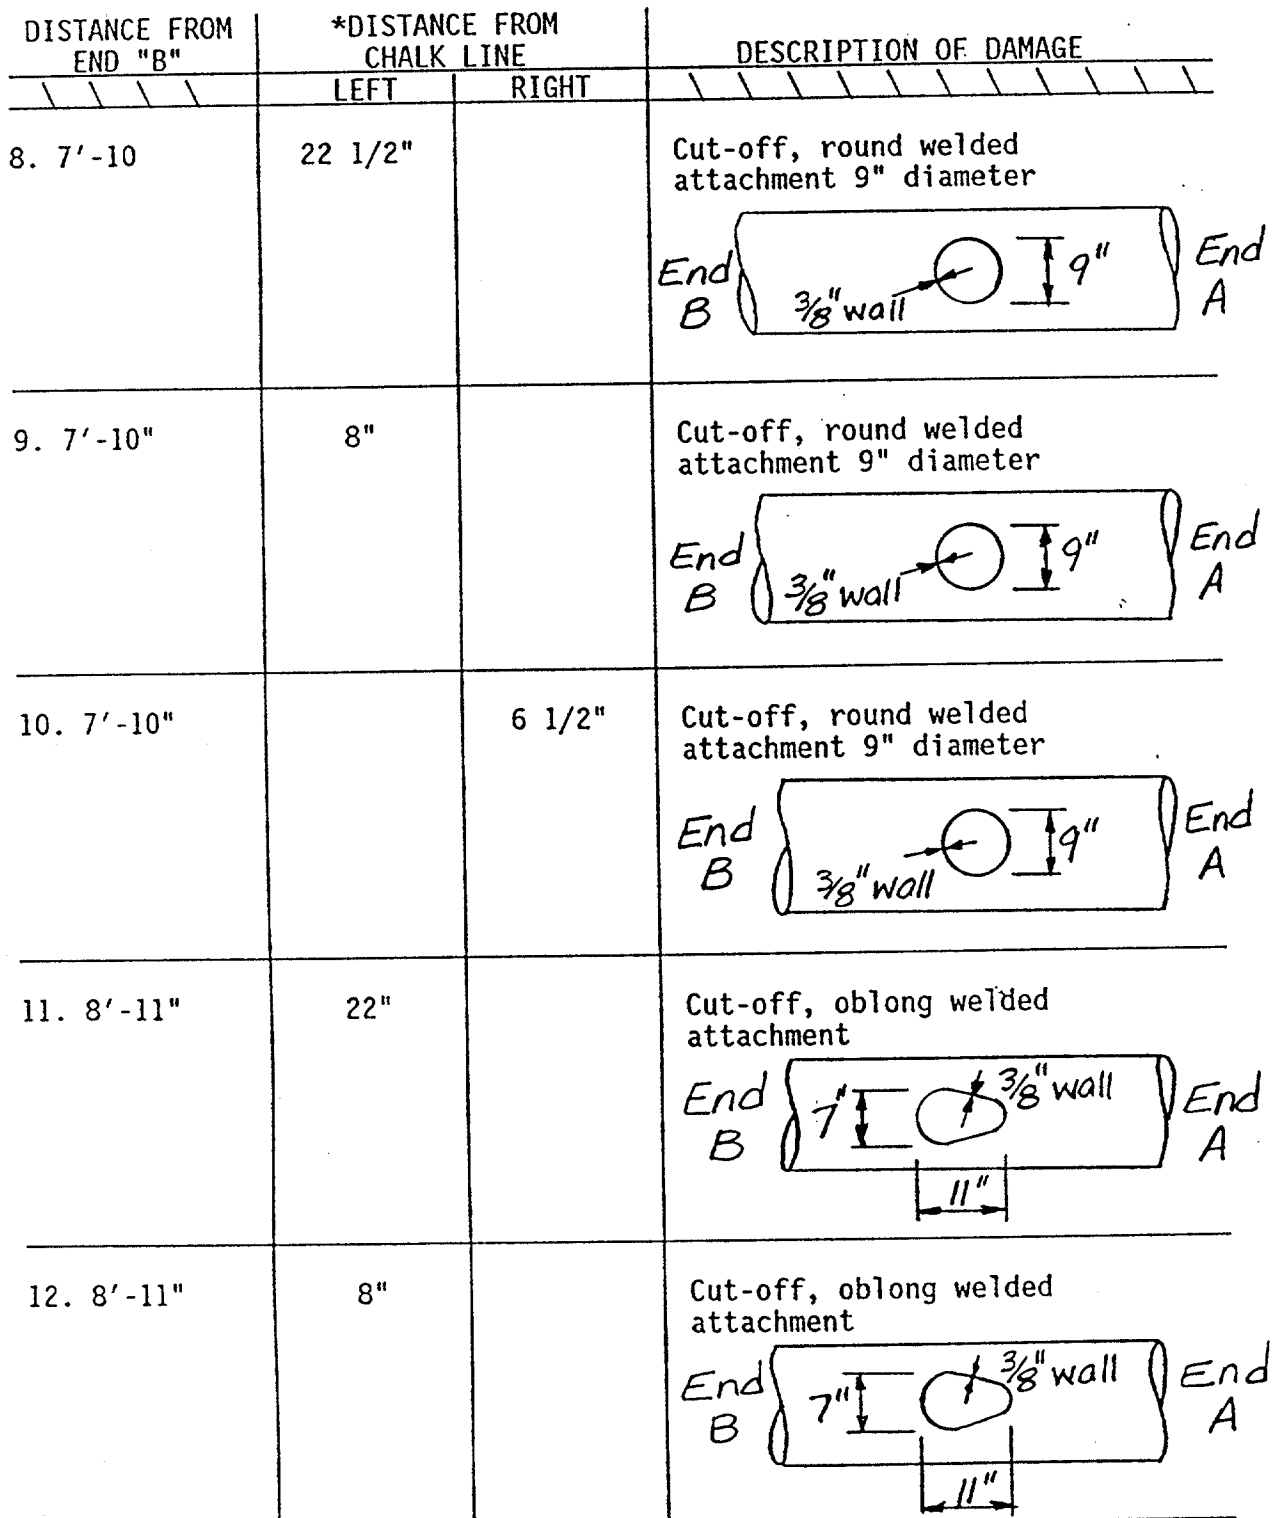 DISTANCE FROM END "B"
*DISTANCE FROM CHALK LINE
DESCRIPTION OF DAMAGE
LEFT
RIGHT
8. 7'-10
22 1/2"
Cut-off, round welded
attachment 9" diameter
End B
3/8" wall
9"
End A
9. 7'-10"
8"
Cut-off, round welded
attachment 9" diameter
End B
3/8" wall
9"
End A
10. 7'-10"
6 1/2"
Cut-off, round welded
attachment 9" diameter
End B
3/8" wall
9"
End A
11. 8'-11"
22"
Cut-off, oblong welded
attachment
End B
7"
3/8" wall
11"
End A
12. 8'-11"
8"
Cut-off, oblong welded
attachment
End B
7"
3/8" wall
11"
End A